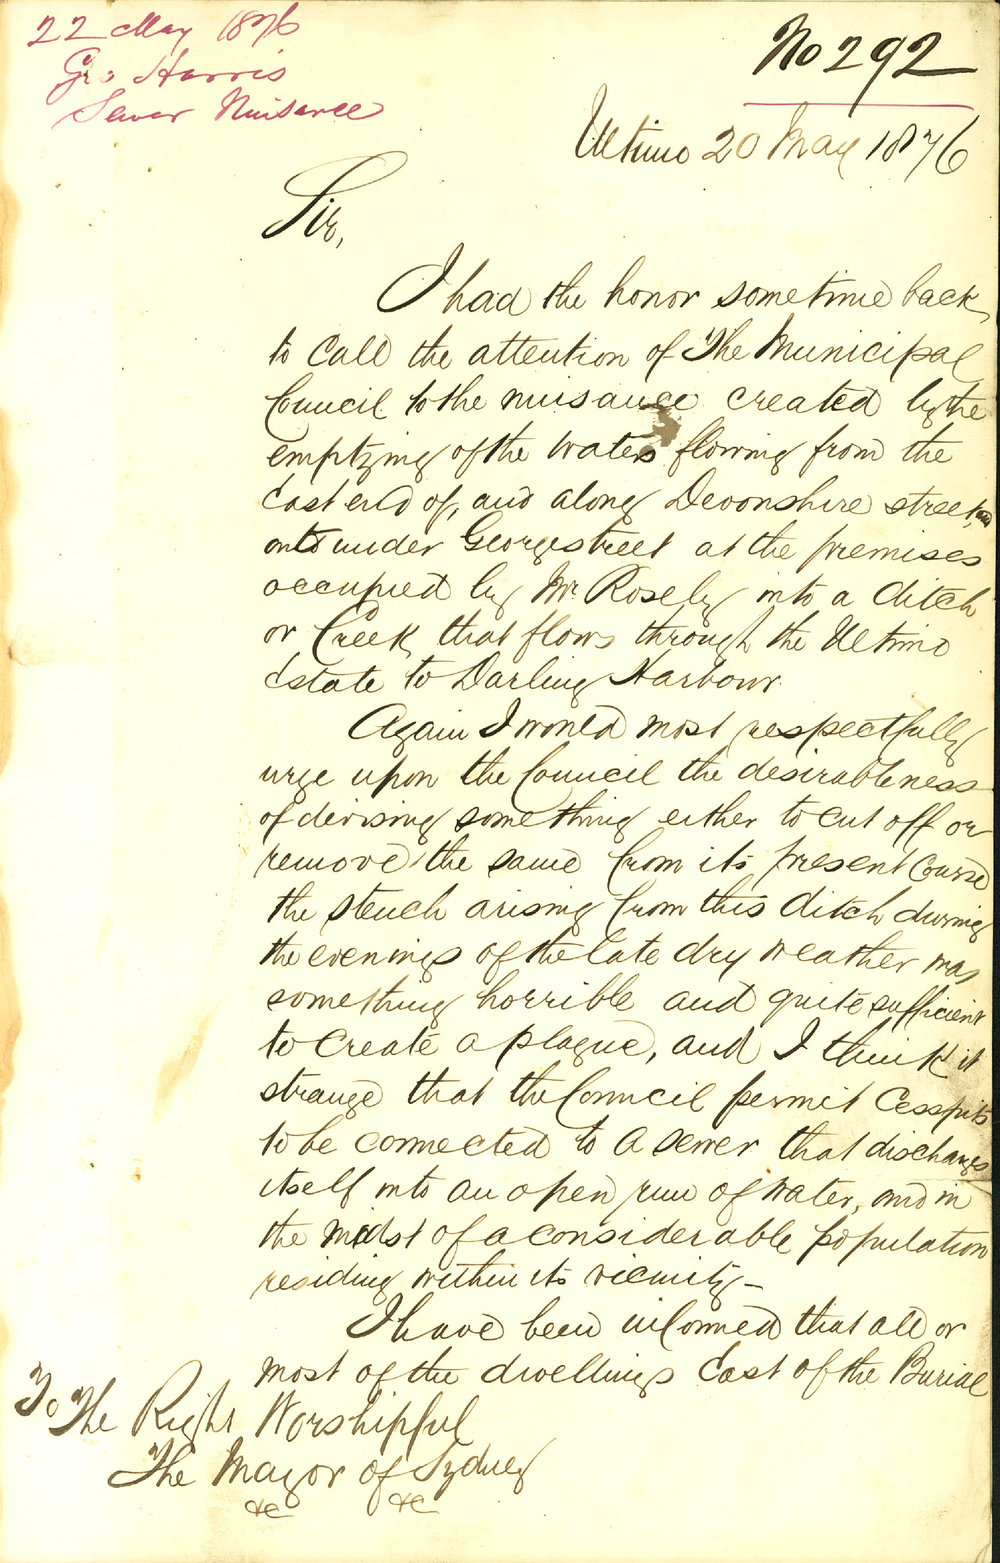 22 May 1876
Geo Harris
Sewer Nuisance
No 292
Ultimo 20 May 1876
Sir,
I had the honor sometime back
to call the attention of The Municipal
Council to the nuisance created by the
emptying of the waters flowing from the
East end of, and along Devonshire street, and
onto under George street at the premises
occupied by Mr Rosely into a ditch
or Creek that flows through the Ultimo
Estate to Darling Harbour.
Again I would most respectfully
urge upon the Council the desirableness
of devising something either to cut off or
remove the same from its present Course
the stench arising from this ditch during
the evenings of the late dry weather was
something horrible and quite sufficient
to create a plague, and I think it
strange that the Council permit Cesspits
to be connected to a sewer that discharges
itself into an open run of water, and in
the midst of a considerable population
residing within its vicinity —
I have been informed that all or
most of the dwellings East of the Burial
To The Right Worshipful
The Mayor of Sydney
&c &c